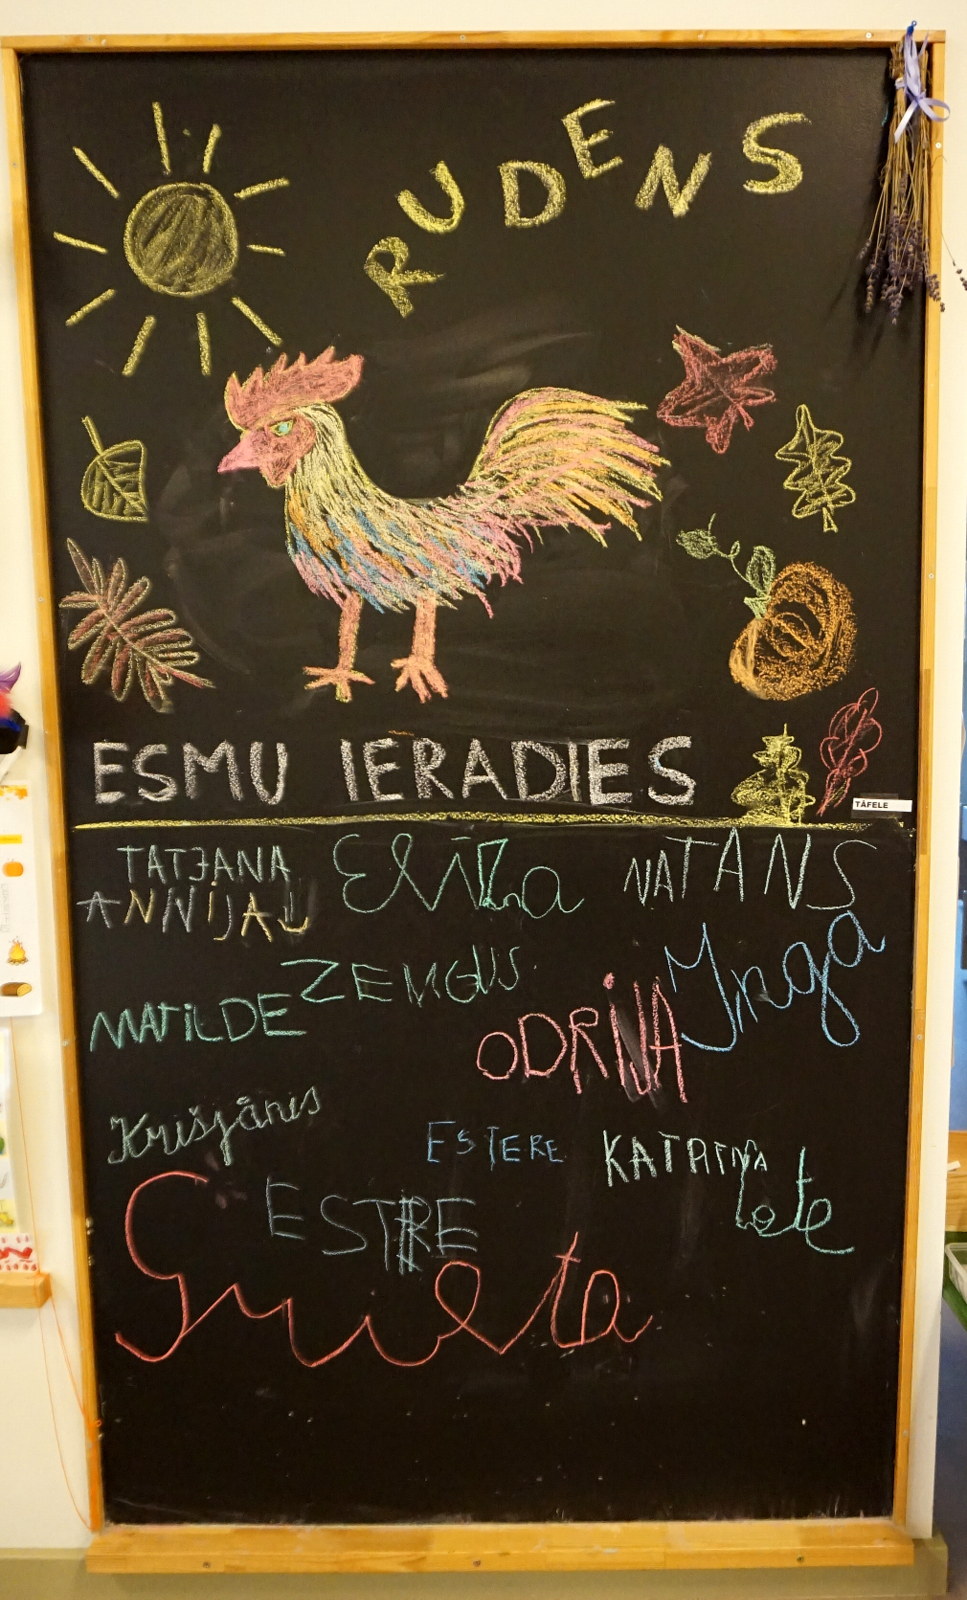 RUDENS
ESMU IERADIES
TĀFELE
TATJANA Elīza NATANS
ANNIJA
ZEMGUS Inga
MATILDE ODRIJA
Krišjānis
ESTERE KATRĪNA
ESTRE Lote
Gunita